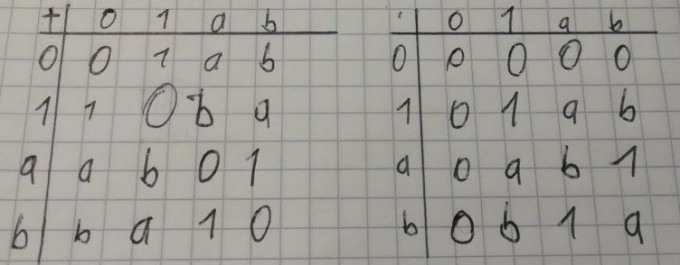 + 0 1 a b · 0 1 a b
0 0 1 a b 0 0 0 0 0
1 1 0 b a 1 0 1 a b
a a b 0 1 a 0 a b 1
b b a 1 0 b 0 b 1 a